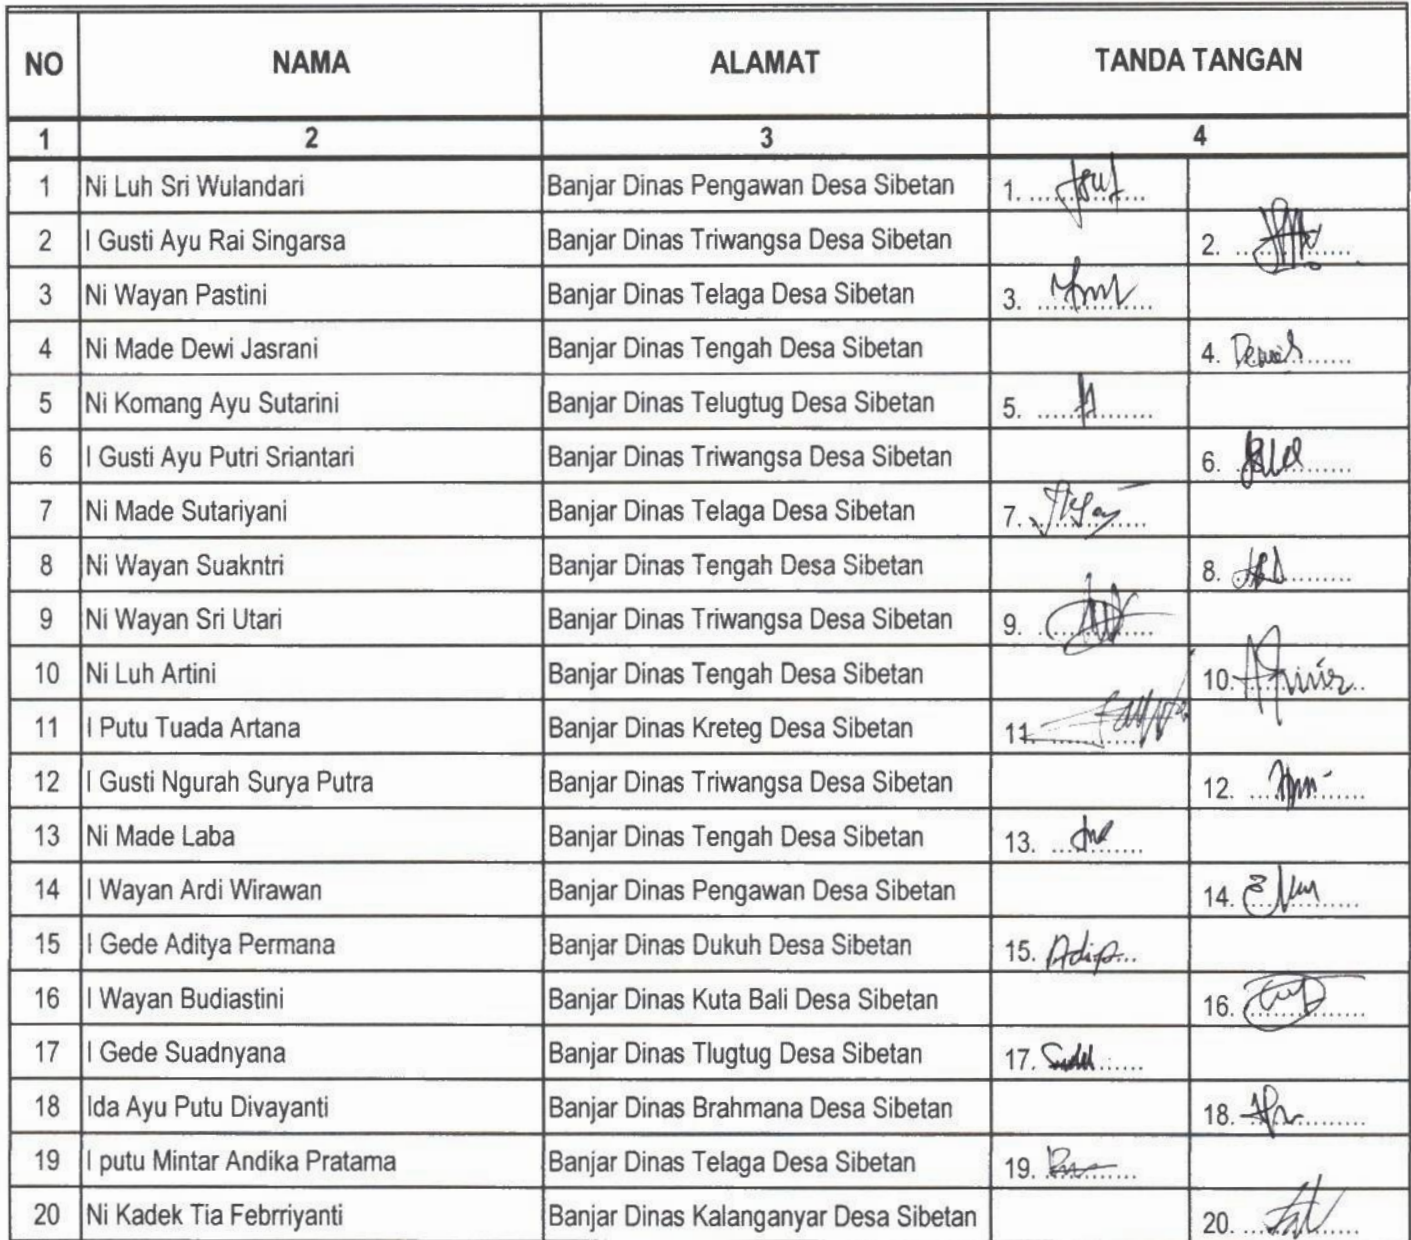 NO NAMA ALAMAT TANDA TANGAN
1 2 3 4
1 Ni Luh Sri Wulandari Banjar Dinas Pengawan Desa Sibetan 1. ..............
2 I Gusti Ayu Rai Singarsa Banjar Dinas Triwangsa Desa Sibetan 2. ..............
3 Ni Wayan Pastini Banjar Dinas Telaga Desa Sibetan 3. ..............
4 Ni Made Dewi Jasrani Banjar Dinas Tengah Desa Sibetan 4. ..............
5 Ni Komang Ayu Sutarini Banjar Dinas Telugtug Desa Sibetan 5. ..............
6 I Gusti Ayu Putri Sriantari Banjar Dinas Triwangsa Desa Sibetan 6. ..............
7 Ni Made Sutariyani Banjar Dinas Telaga Desa Sibetan 7. ..............
8 Ni Wayan Suakntri Banjar Dinas Tengah Desa Sibetan 8. ..............
9 Ni Wayan Sri Utari Banjar Dinas Triwangsa Desa Sibetan 9. ..............
10 Ni Luh Artini Banjar Dinas Tengah Desa Sibetan 10. ..............
11 I Putu Tuada Artana Banjar Dinas Kreteg Desa Sibetan 11. ..............
12 I Gusti Ngurah Surya Putra Banjar Dinas Triwangsa Desa Sibetan 12. ..............
13 Ni Made Laba Banjar Dinas Tengah Desa Sibetan 13. ..............
14 I Wayan Ardi Wirawan Banjar Dinas Pengawan Desa Sibetan 14. ..............
15 I Gede Aditya Permana Banjar Dinas Dukuh Desa Sibetan 15. Adip...
16 I Wayan Budiastini Banjar Dinas Kuta Bali Desa Sibetan 16. ..............
17 I Gede Suadnyana Banjar Dinas Tlugtug Desa Sibetan 17. ..............
18 Ida Ayu Putu Divayanti Banjar Dinas Brahmana Desa Sibetan 18. ..............
19 I putu Mintar Andika Pratama Banjar Dinas Telaga Desa Sibetan 19. ..............
20 Ni Kadek Tia Febrriyanti Banjar Dinas Kalanganyar Desa Sibetan 20. ..............